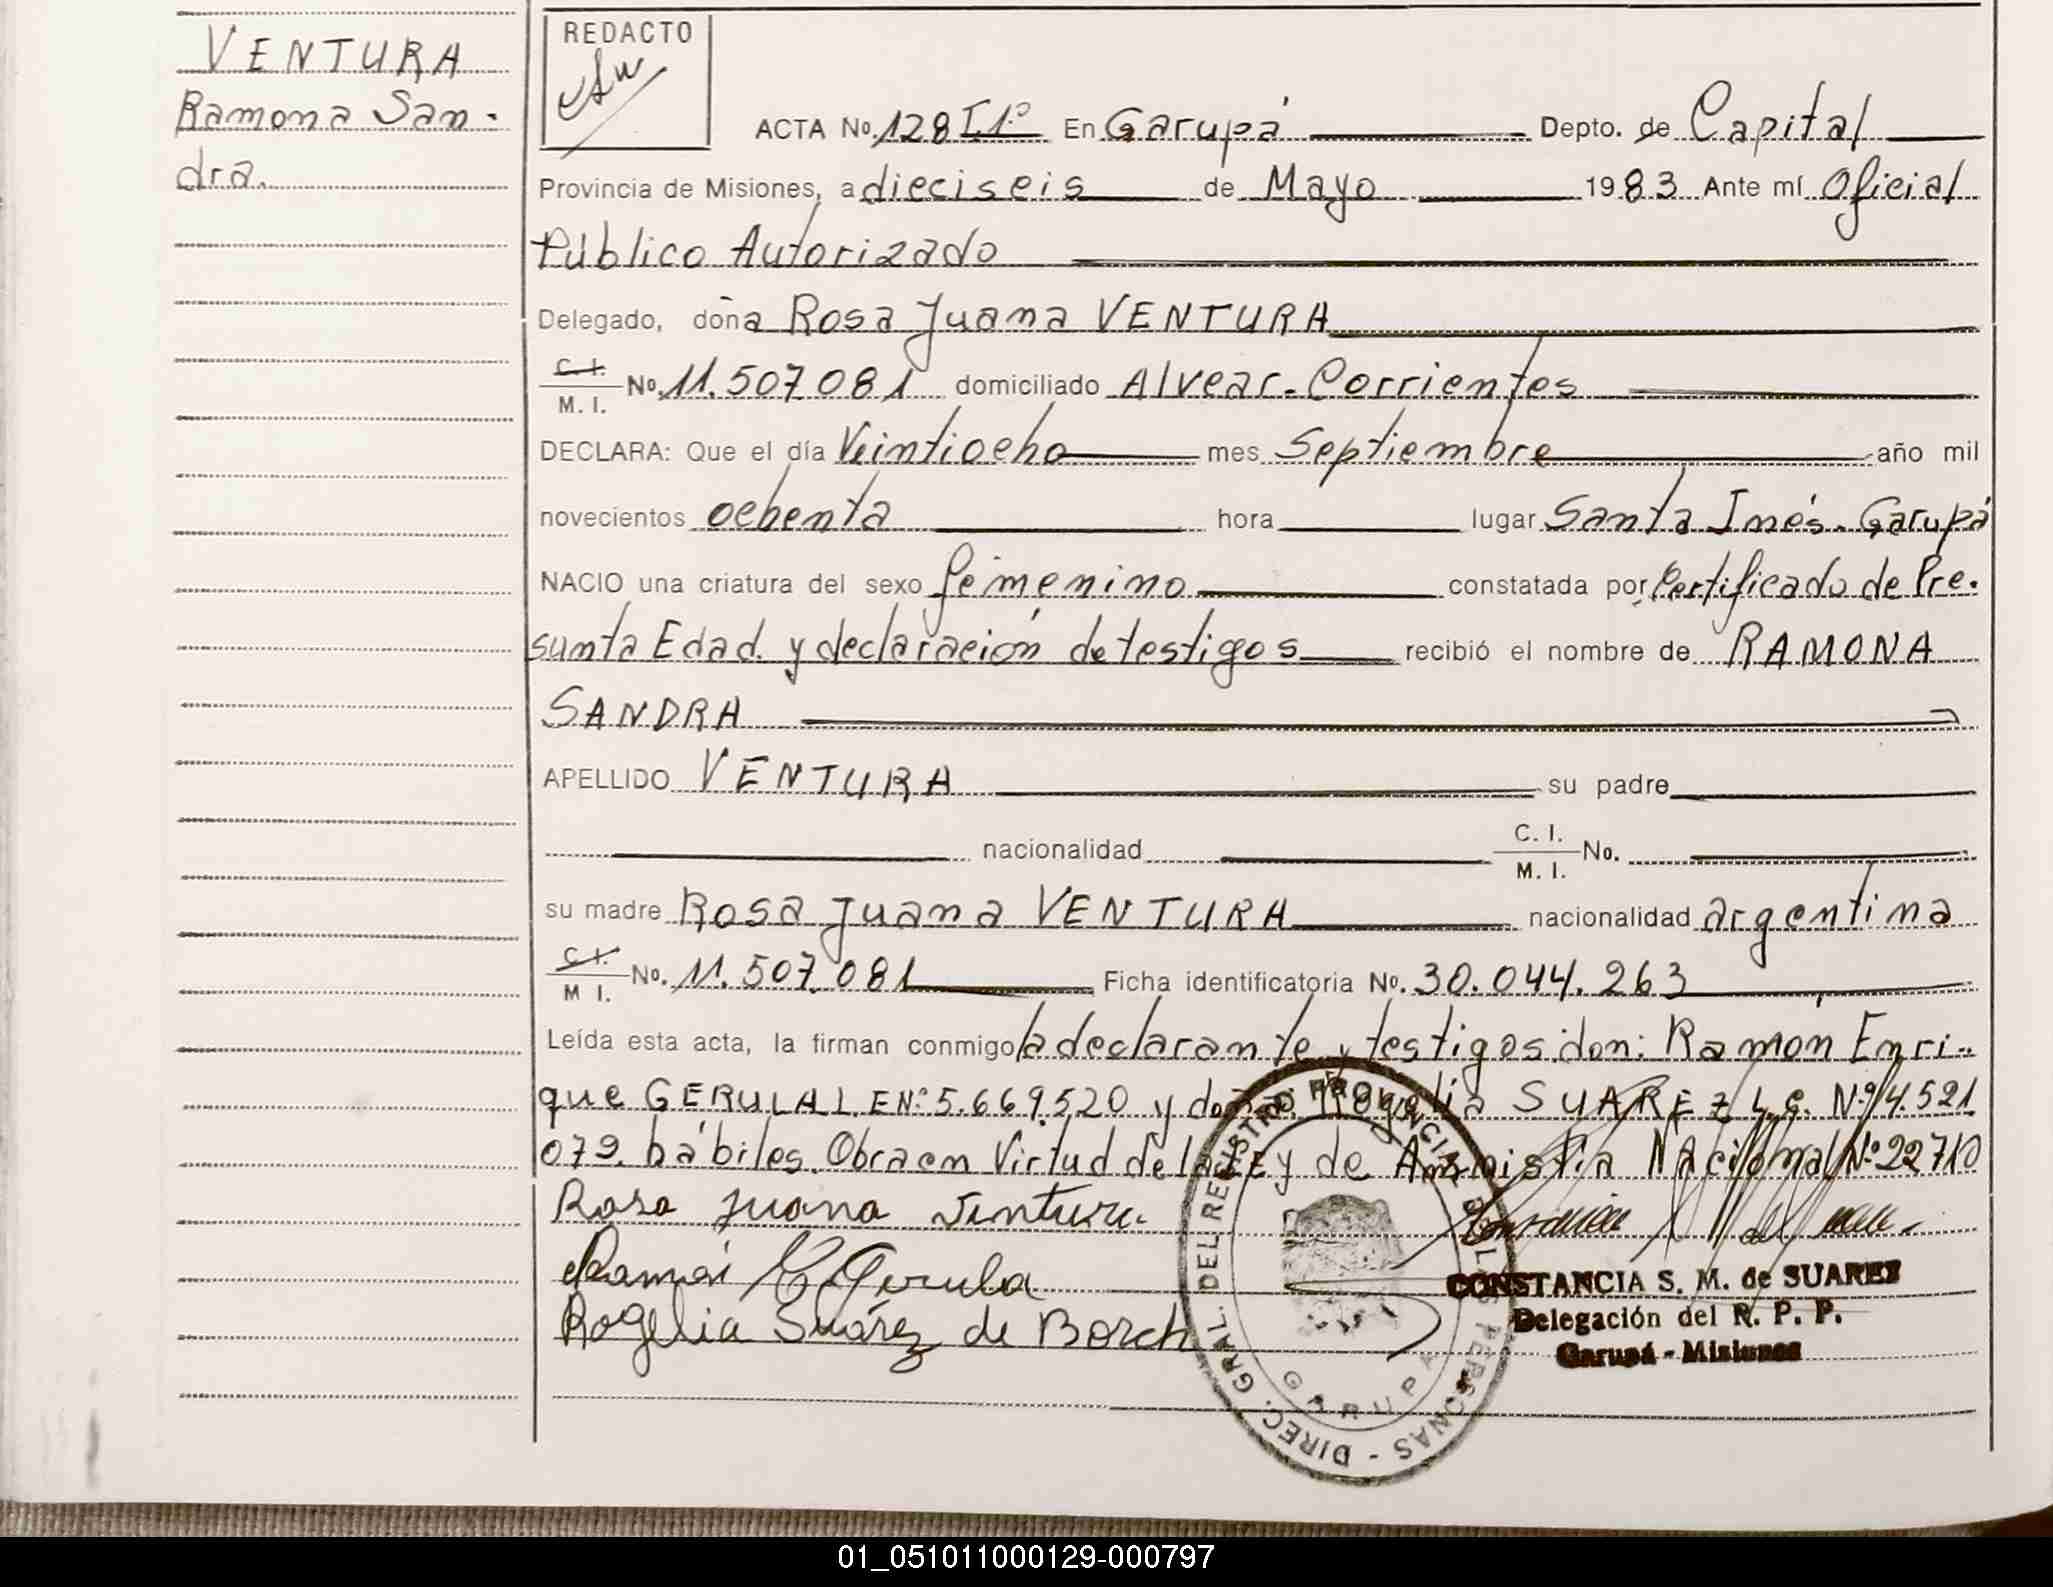 VENTURA
Ramona San-
dra.
REDACTO
ACTA No. 128 T.1º En Garupá Depto. de Capital
Provincia de Misiones, a dieciseis de Mayo 1983 Ante mí Oficial
Público Autorizado
Delegado, doña Rosa Juana VENTURA
C. I.
M. I. No. 11.507.081 domiciliado Alvear-Corrientes
DECLARA: Que el día Veintiocho mes Septiembre año mil
novecientos ochenta hora lugar Santa Inés-Garupá
NACIO una criatura del sexo femenino constatada por Certificado de Pre-
sunta Edad y declaración de testigos recibió el nombre de RAMONA
SANDRA
APELLIDO VENTURA su padre
nacionalidad C. I.
M. I. No.
su madre Rosa Juana VENTURA nacionalidad argentina
C. I.
M I. No. 11.507.081 Ficha identificatoria No. 30.044.263
Leída esta acta, la firman conmigo la declarante y testigos don: Ramón Enri-
que GERULA L.E Nº 5.669.520 y doña Rogelia SUAREZ L.C. Nº 4.521.
079. hábiles. Obra en Virtud de la LEy de Amnistia Nacional Nº 22710
Rosa Juana Ventura
Ramón E Gerula
Rogelia Suárez de Borch
DIREC. GRAL. DEL REGISTRO PROVINCIAL DE LAS PERSONAS -
GARUPA
CONSTANCIA S. M. de SUAREZ
Delegación del R. P. P.
Garupá - Misiones
01_051011000129-000797